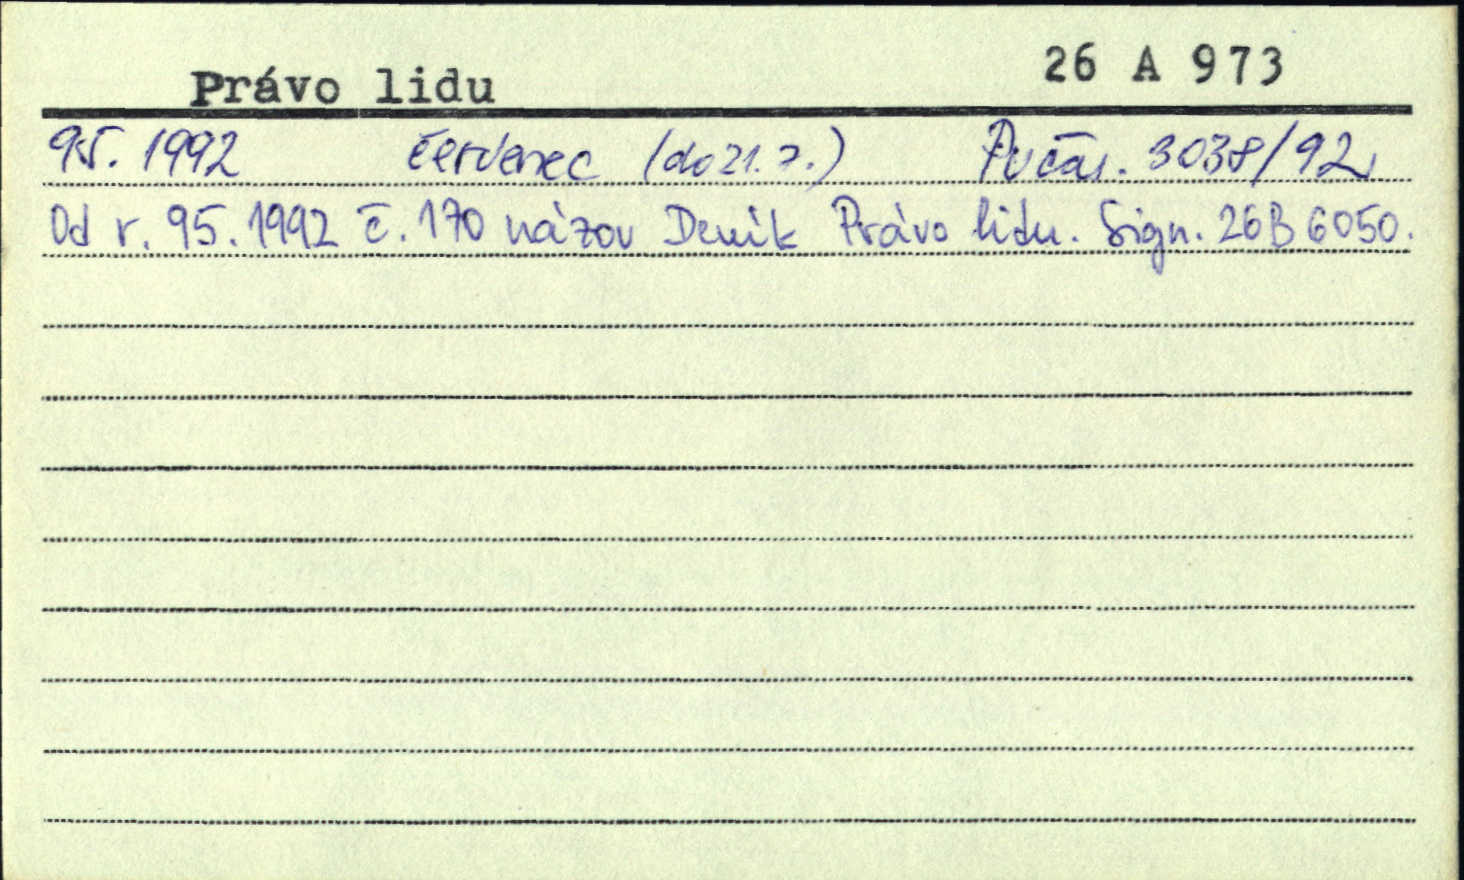 Právo lidu 26 A 973
95. 1992 červenec (do 21. 7.) Pvčas. 3038/92
Od r. 95. 1992 č. 170 názov Denik Právo lidu. Sign. 26 B 6050.